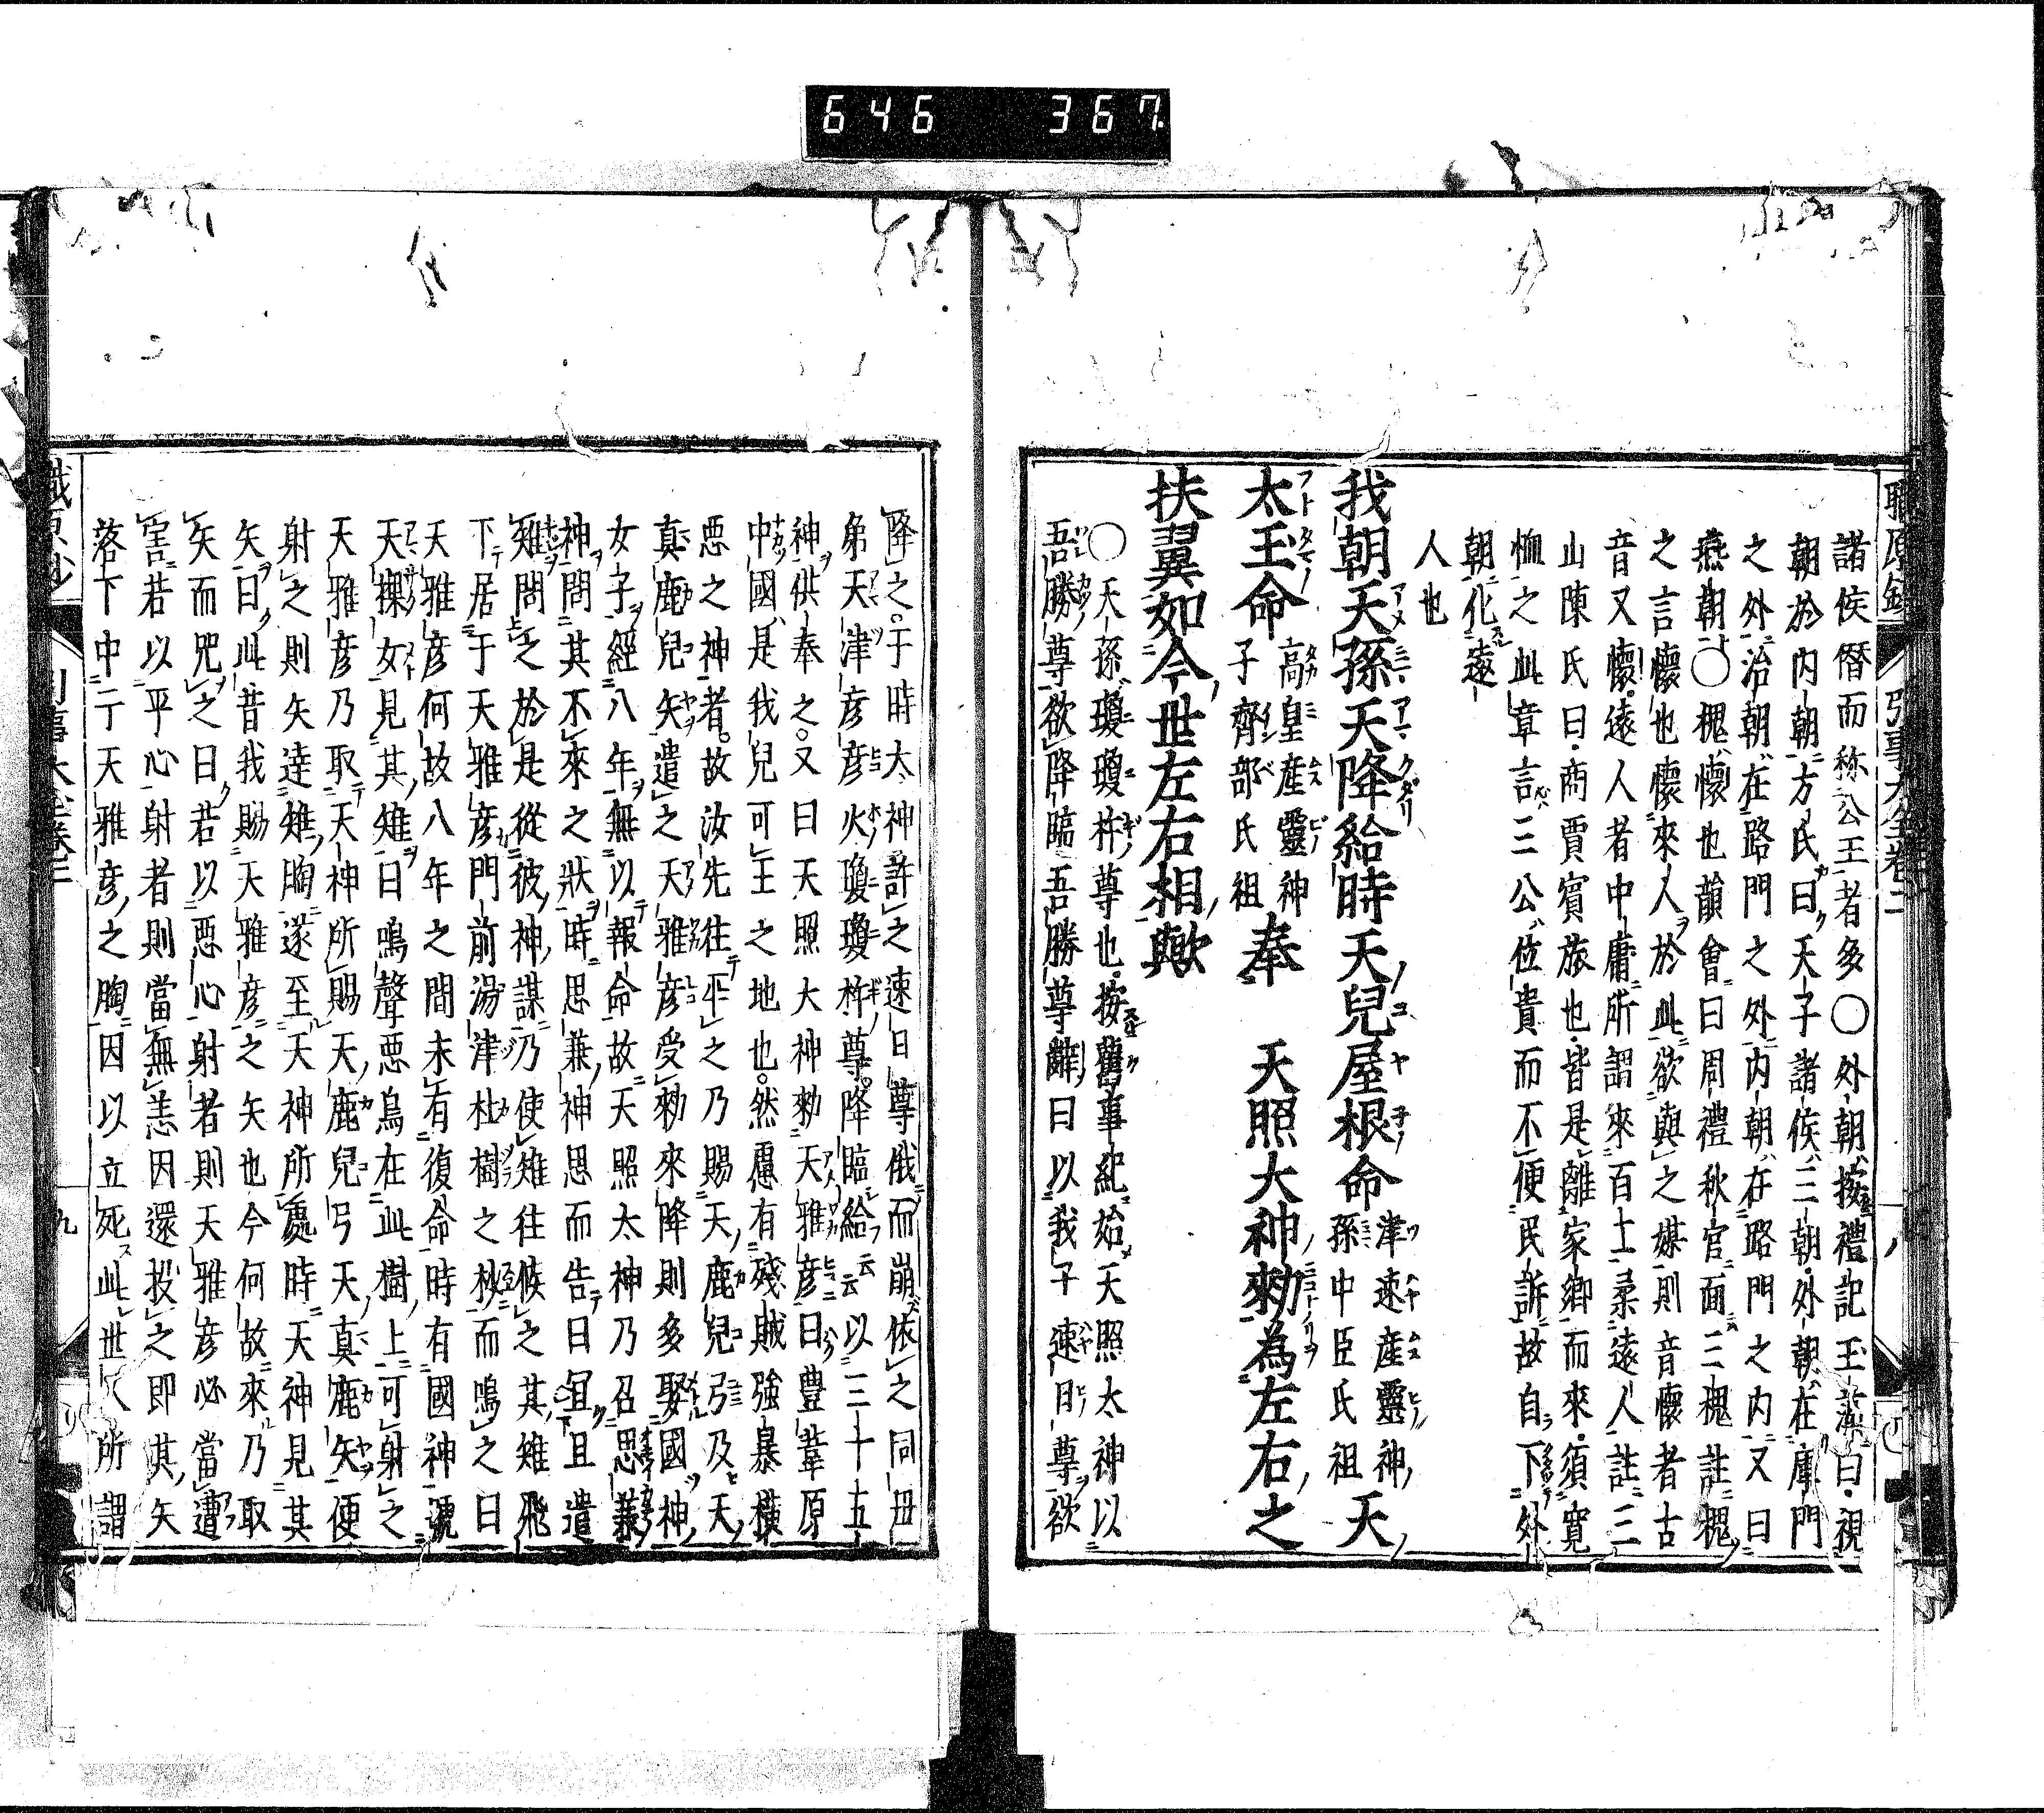 646 367
諸侯僭而称公王者多〇外朝按禮記玉藻曰視
朝於内朝方氏曰天子諸侯三朝外朝在庫門
之外治朝在路門之外内朝在路門之内又曰
燕朝〇槐懷也韻會曰周禮秋官面三槐註槐
之言懷也懷來人於此欲與之媒則音懷者古
音又懷遠人者中庸所謂來百工柔遠人註三
山陳氏曰商賈賓旅也皆是離家鄉而來須寬
恤之此章言三公位貴而不便民訴故自下外
朝化遠
人也
我朝天孫天降給時天兒屋根命津速産靈神天孫中臣氏祖
太玉命高皇産靈神子齊部氏祖奉 天照大神勑為左右之
扶翼如今世左右相歟
〇天孫瓊瓊杵尊也按舊事紀始天照太神以
吾勝尊欲降臨吾勝尊辭曰以我子速日尊欲
降之于時大神許之速日尊俄而崩依之同母
弟天津彦彦火瓊瓊杵尊降臨給云云以三十五
神供奉之又曰天照大神勑天雅彦曰豊葦原
中國是我兒可王之地也然慮有殘賊強暴横
悪之神者故汝先往平之乃賜天鹿兒弓及天
真鹿兒矢遣之天雅彦受勑來降則多娶國神
女子經八年無以報命故天照太神乃召思兼
神問其不來之狀時思兼神思而告曰宜且遣
雉問之於是從彼神謀乃使雉往候之其雉飛
下居于天雅彦門前湯津杜樹之杪而鳴之曰
天雅彦何故八年之間未有復命時有國神號
天探女見其雉曰鳴聲悪鳥在此樹上可射之
天雅彦乃取天神所賜天鹿兒弓天真鹿矢便
射之則矢達雉胸遂至天神所處時天神見其
矢曰此昔我賜天雅彦之矢也今何故來乃取
矢而咒之曰若以悪心射者則天雅彦必當遭
害若以平心射者則當無恙因還投之即其矢
落下中于天雅彦之胸因以立死此世人所謂